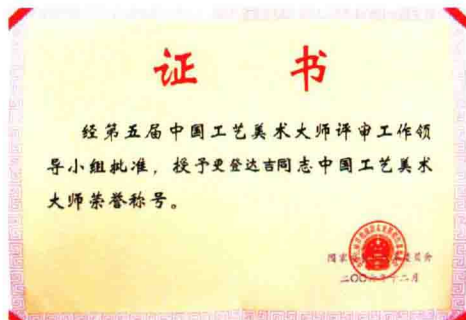 证 书
经第五届中国工艺美术大师评审工作领
导小组批准，授予更登达吉同志中国工艺美术
大师荣誉称号。
国家 委员会
二〇〇六年十二月